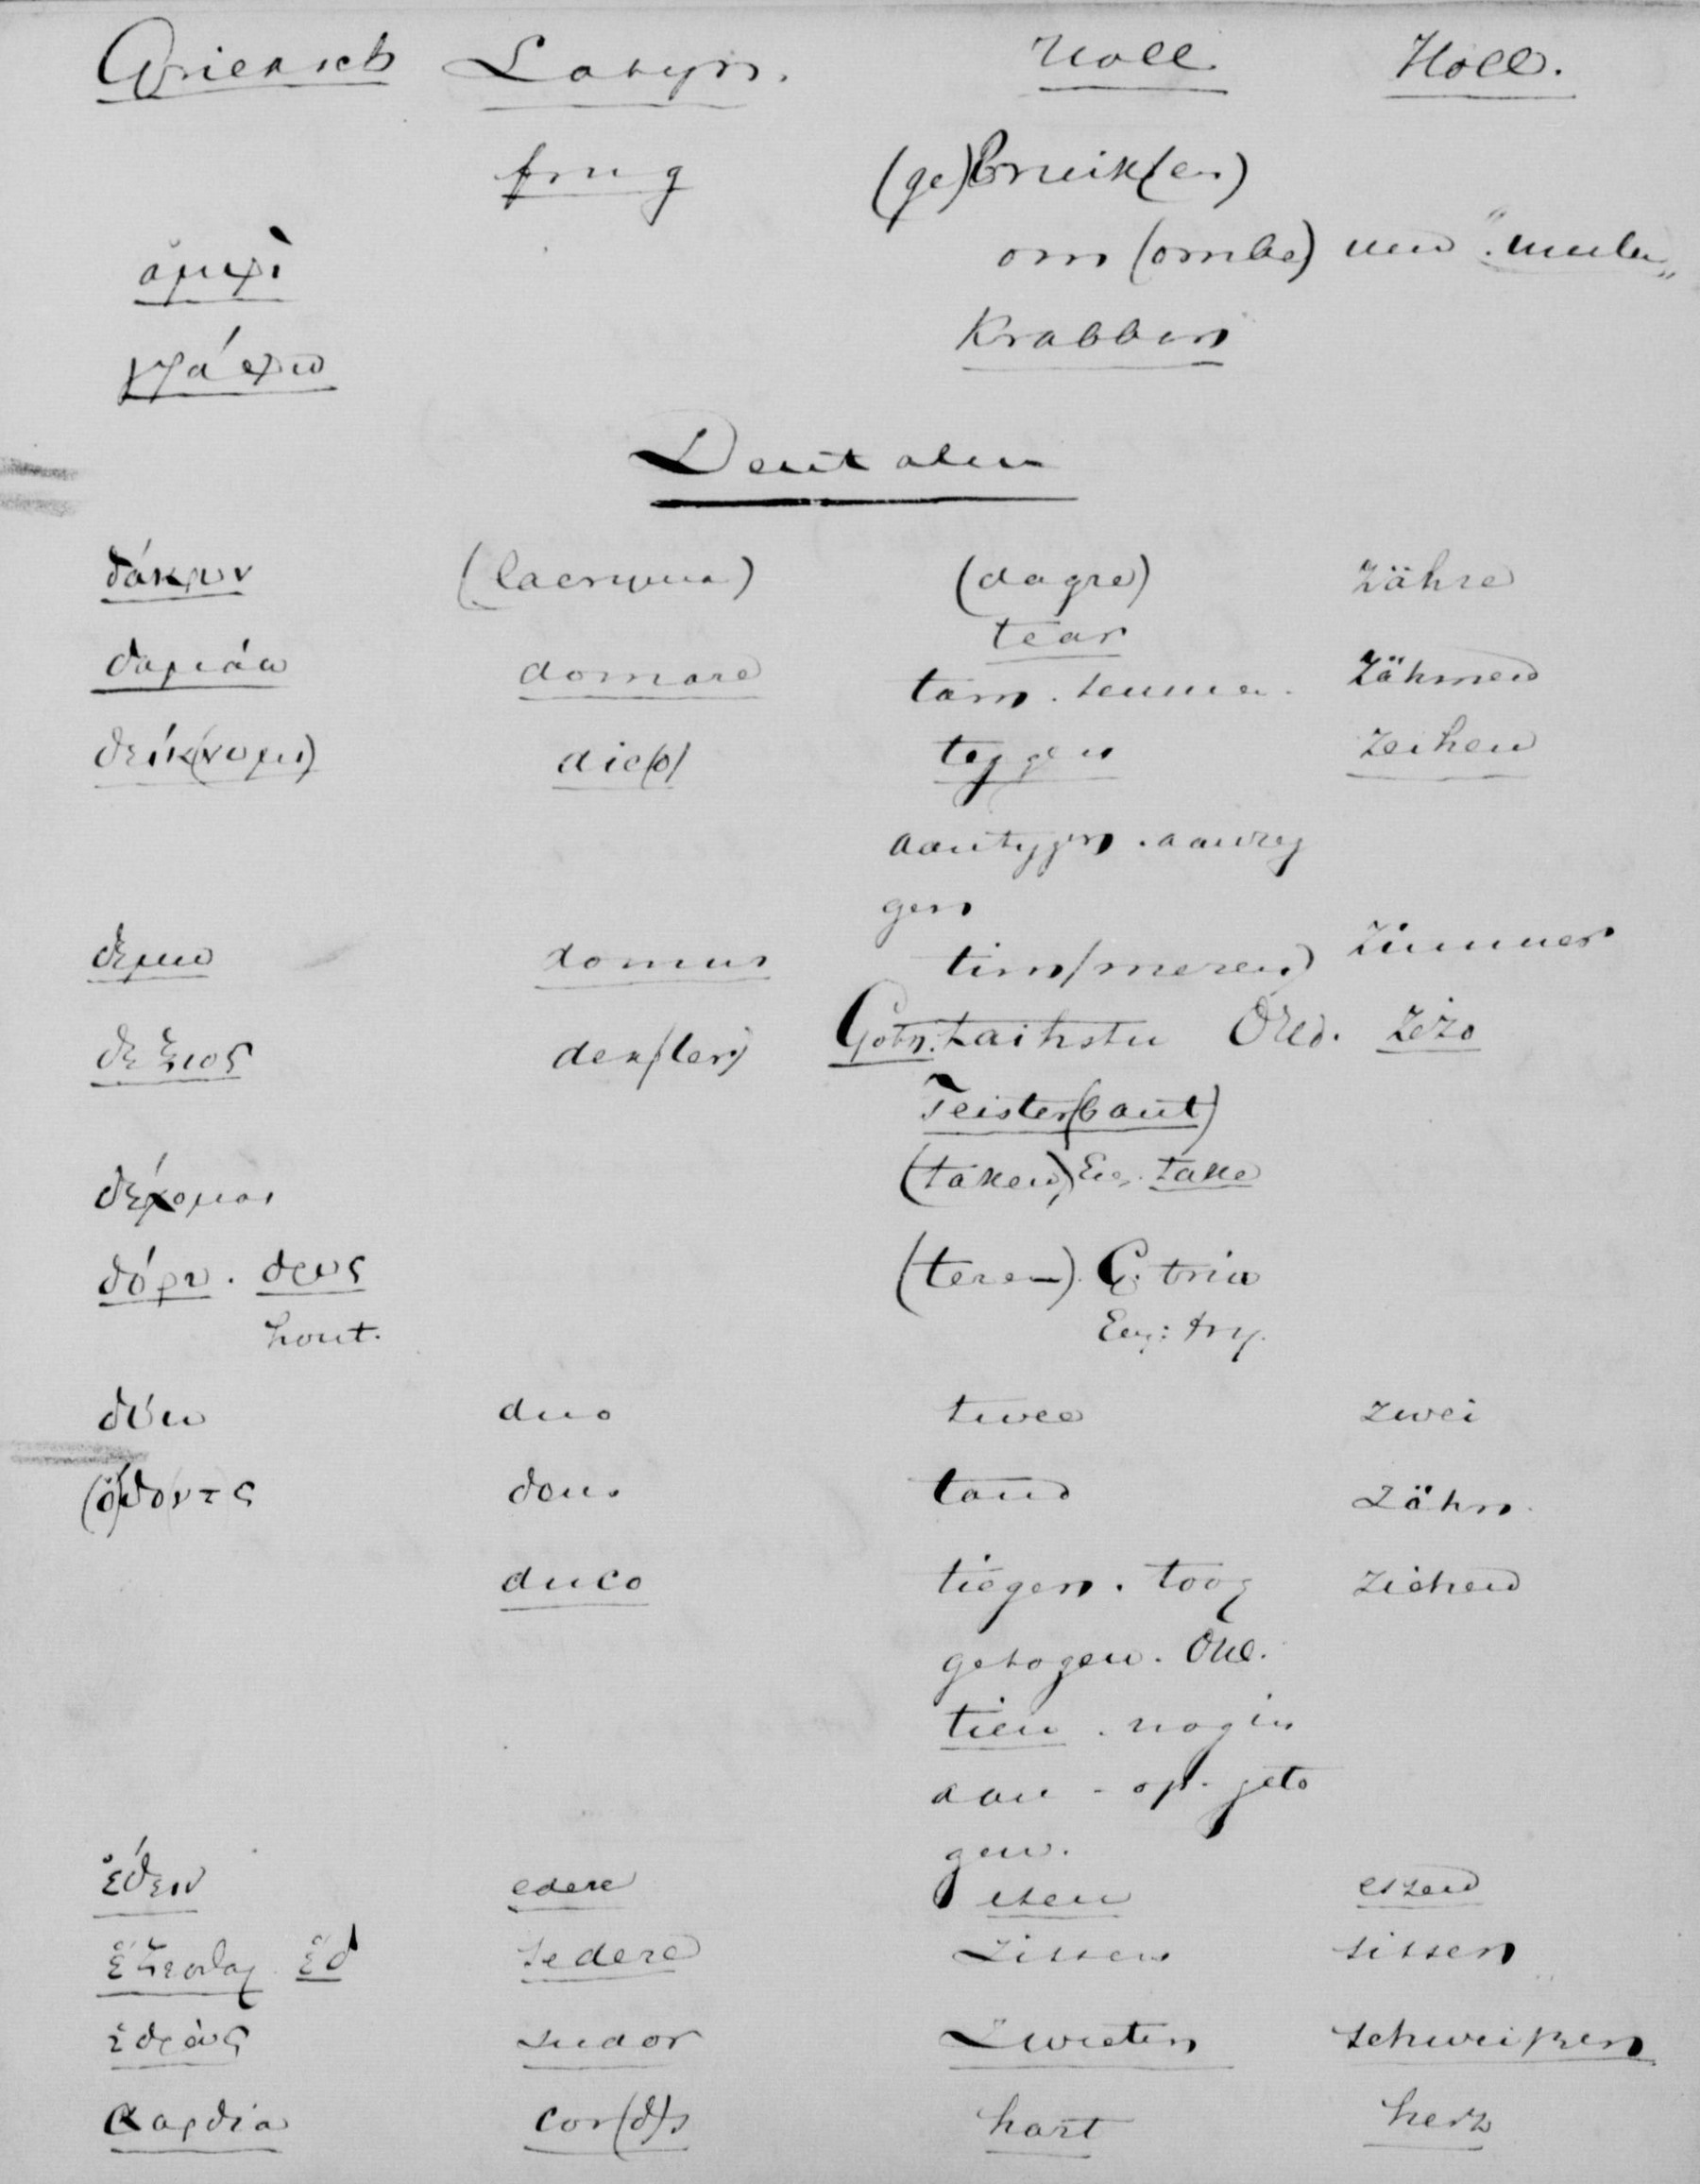 Grieksch Latyn. Holl. Holl.
frug (ge)bruik(en)
ἀμφὶ om (ombe) um "umbe"
γράφω Krabben
Dentalen
δάκρυν (lacryma) (dagre) Zähre
tear
δαμάω domare tam. temmen. Zähmen
δείκ(νυμι) dic(o) teggen zeihen
aantygen. aanzeg
gen
δεμω domus tim(meren) Zimmer
δεξιος dex(ter) Goth. taihstu OHd. zezo
Teister(bant)
(taken) Eng. take
δέχομαι
δόρυ. δρυς (teren). G. triu
hout. Eng: try.
δύω duo twee zwei
(ὀ)δοντς dens tand Zähn.
duco tiegen. toog ziehen
getogen. OHl.
tien. nog in
aan - op - geto
gen.
ἔδειν edere eten eszen
ἕζεσθαι ἑδ sedere zitten sitsen
ἱδρώς sudor Zweeten schweiszen
καρδία cor(d)s hart herz